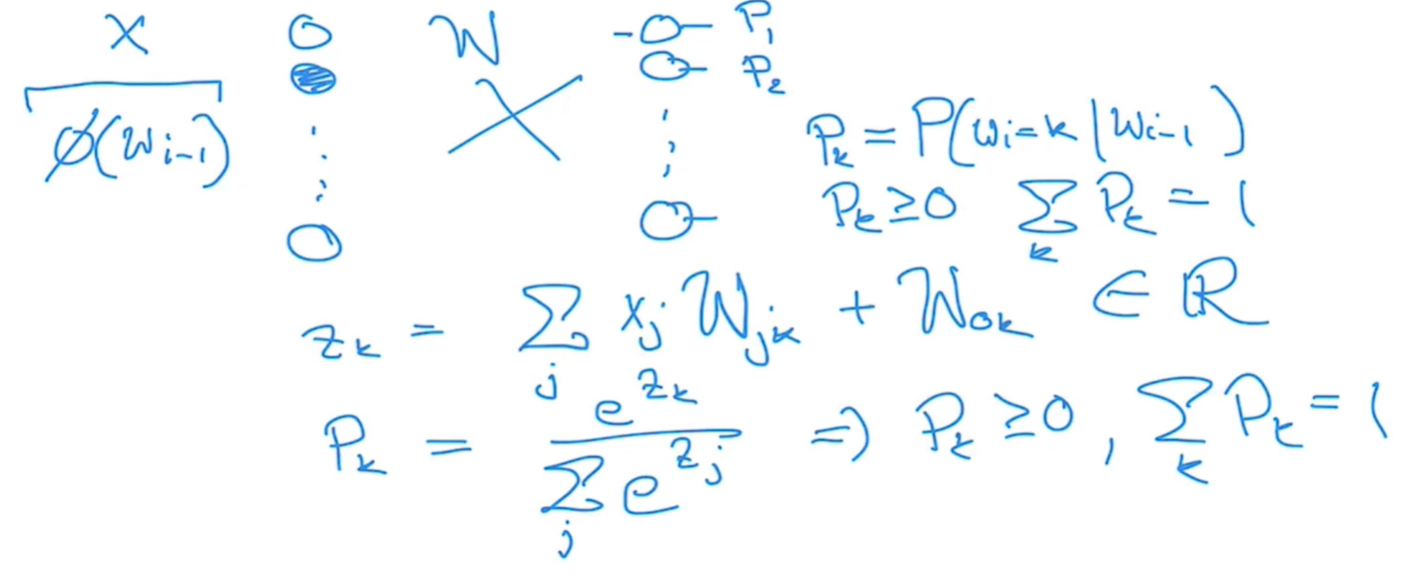 x W P₁
ϕ(wᵢ₋₁) P₂
Pₖ = P(wᵢ=k | wᵢ₋₁)
Pₖ ≥ 0 ∑ₖ Pₖ = 1
zₖ = ∑ⱼ xⱼ Wⱼₖ + W₀ₖ ∈ ℝ
Pₖ = e^{zₖ} / ∑ⱼ e^{zⱼ} ⇒ Pₖ ≥ 0, ∑ₖ Pₖ = 1